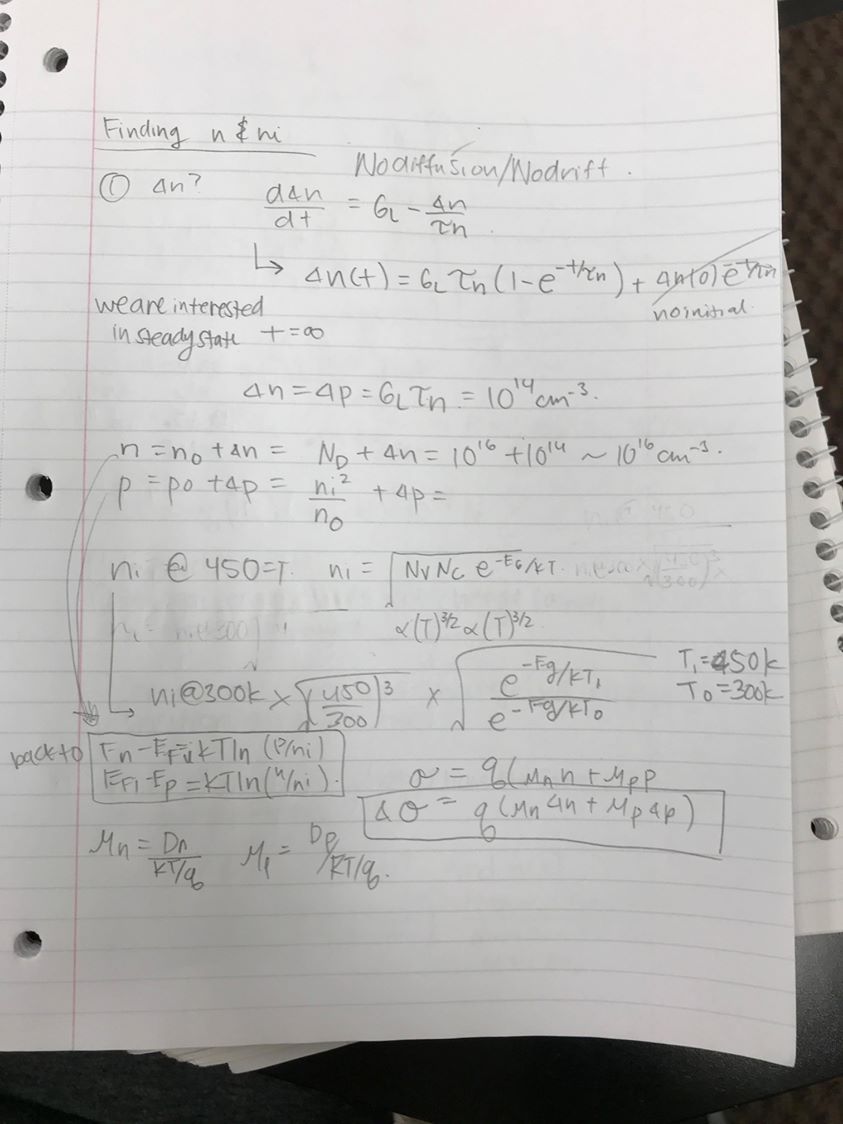 Finding n & ni
No diffusion/No drift.
① Δn? dΔn/dt = GL - Δn/τn.
↳ Δn(t) = GL τn (1-e^-t/τn) + Δn(0) e^-t/τn
we are interested
no initial.
in steady state t=∞
Δn = Δp = GL τn = 10^14 cm^-3.
n = no + Δn = ND + Δn = 10^16 + 10^14 ~ 10^16 cm^-3.
p = po + Δp = ni^2/no + Δp =
ni @ 450=T. ni = √(NV NC e^-EG/kT.
∝(T)^3/2 ∝(T)^3/2
ni@300k × √(450/300)^3 × √(e^-Eg/kT1 / e^-Eg/kTo) T1=450k
To=300k
back to Fn-EFi=kTln(p/ni)
EFi-Ep=KTln(n/ni).
σ = q(μnn+μpp
Δσ = q(μnΔn+μpΔp)
μn = Dn/kT/q μp = Dp/kT/q.